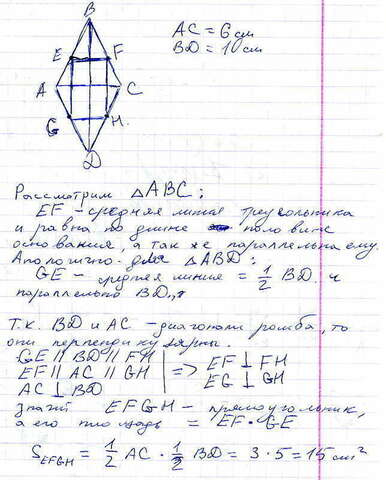 B
AC = 6 см
BD = 10 см
E F
A C
G H
D
Рассмотрим △ABC:
EF – средняя линия треугольника
и равна по длине половине
основания, а так же параллельна ему.
Аналогично для △ABD:
GE – средняя линия = 1/2 BD и
параллельна BD
Т.к. BD и AC – диагонали ромба, то
они перпендикулярны.
GE || BD || FH
EF || AC || GH => EF ⊥ FH
AC ⊥ BD EG ⊥ GH
значит EFGH – прямоугольник,
а его площадь = EF · GE
S EFGH = 1/2 AC · 1/2 BD = 3 · 5 = 15 см²